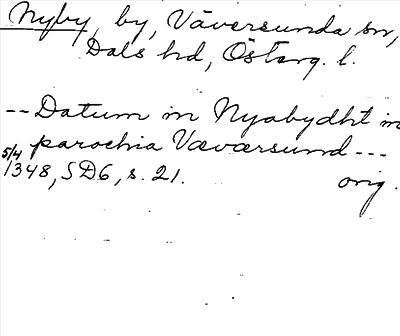 Nyby, by, Väversunda sn,
Dals hd, Östarg. l.
-- Datum in Nyabydht in
parochia Væværsund ---
5/4 1348, SD6, s. 21. orig.